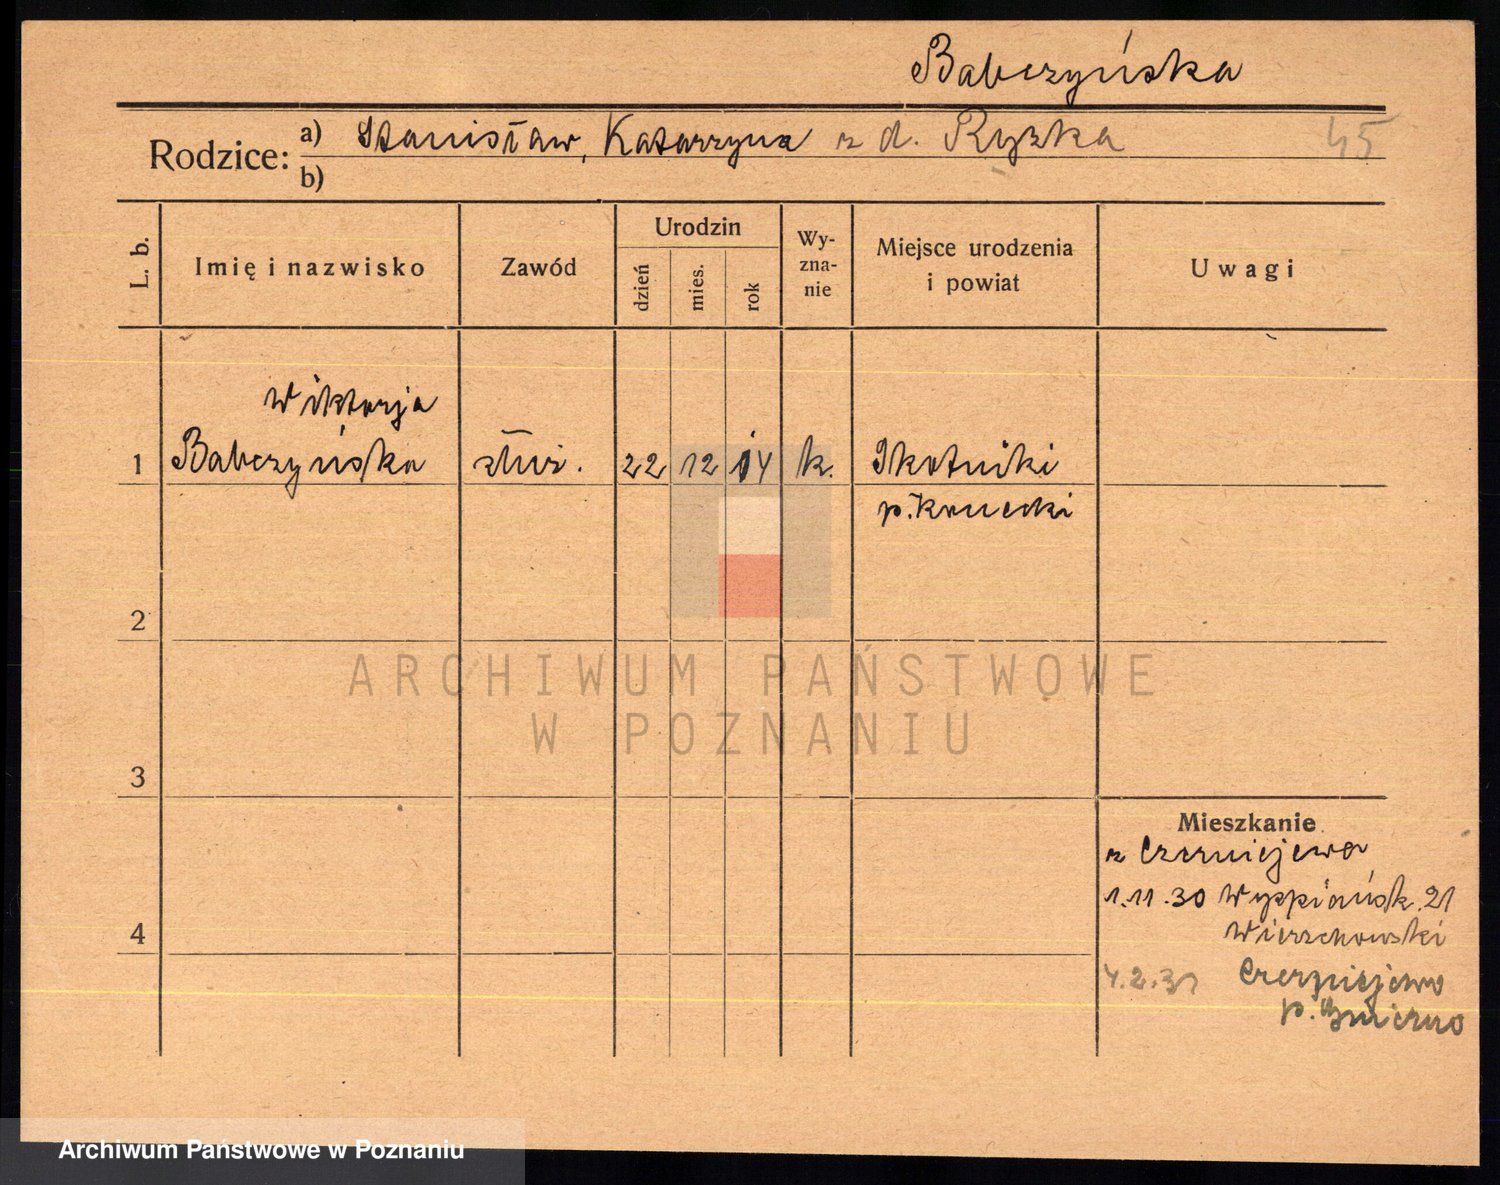 Babczyńska
Rodzice: a) Stanisław, Katarzyna z d. Ryszka 45
b)
L. b. Imię i nazwisko Zawód Urodzin dzień mies. rok Wy-zna-nie Miejsce urodzenia i powiat Uwagi
Wiktorja
1 Babczyńska służ. 22 12 14 k. Skotniki
p. Konecki
2
ARCHIWUM PAŃSTWOWE
W POZNANIU
3
Mieszkanie
z Czerniejewa
1.11.30 Wyspiańsk. 21
4 Wierzchowski
4.2.31 Czerniejewo
p.
Archiwum Państwowe w Poznaniu